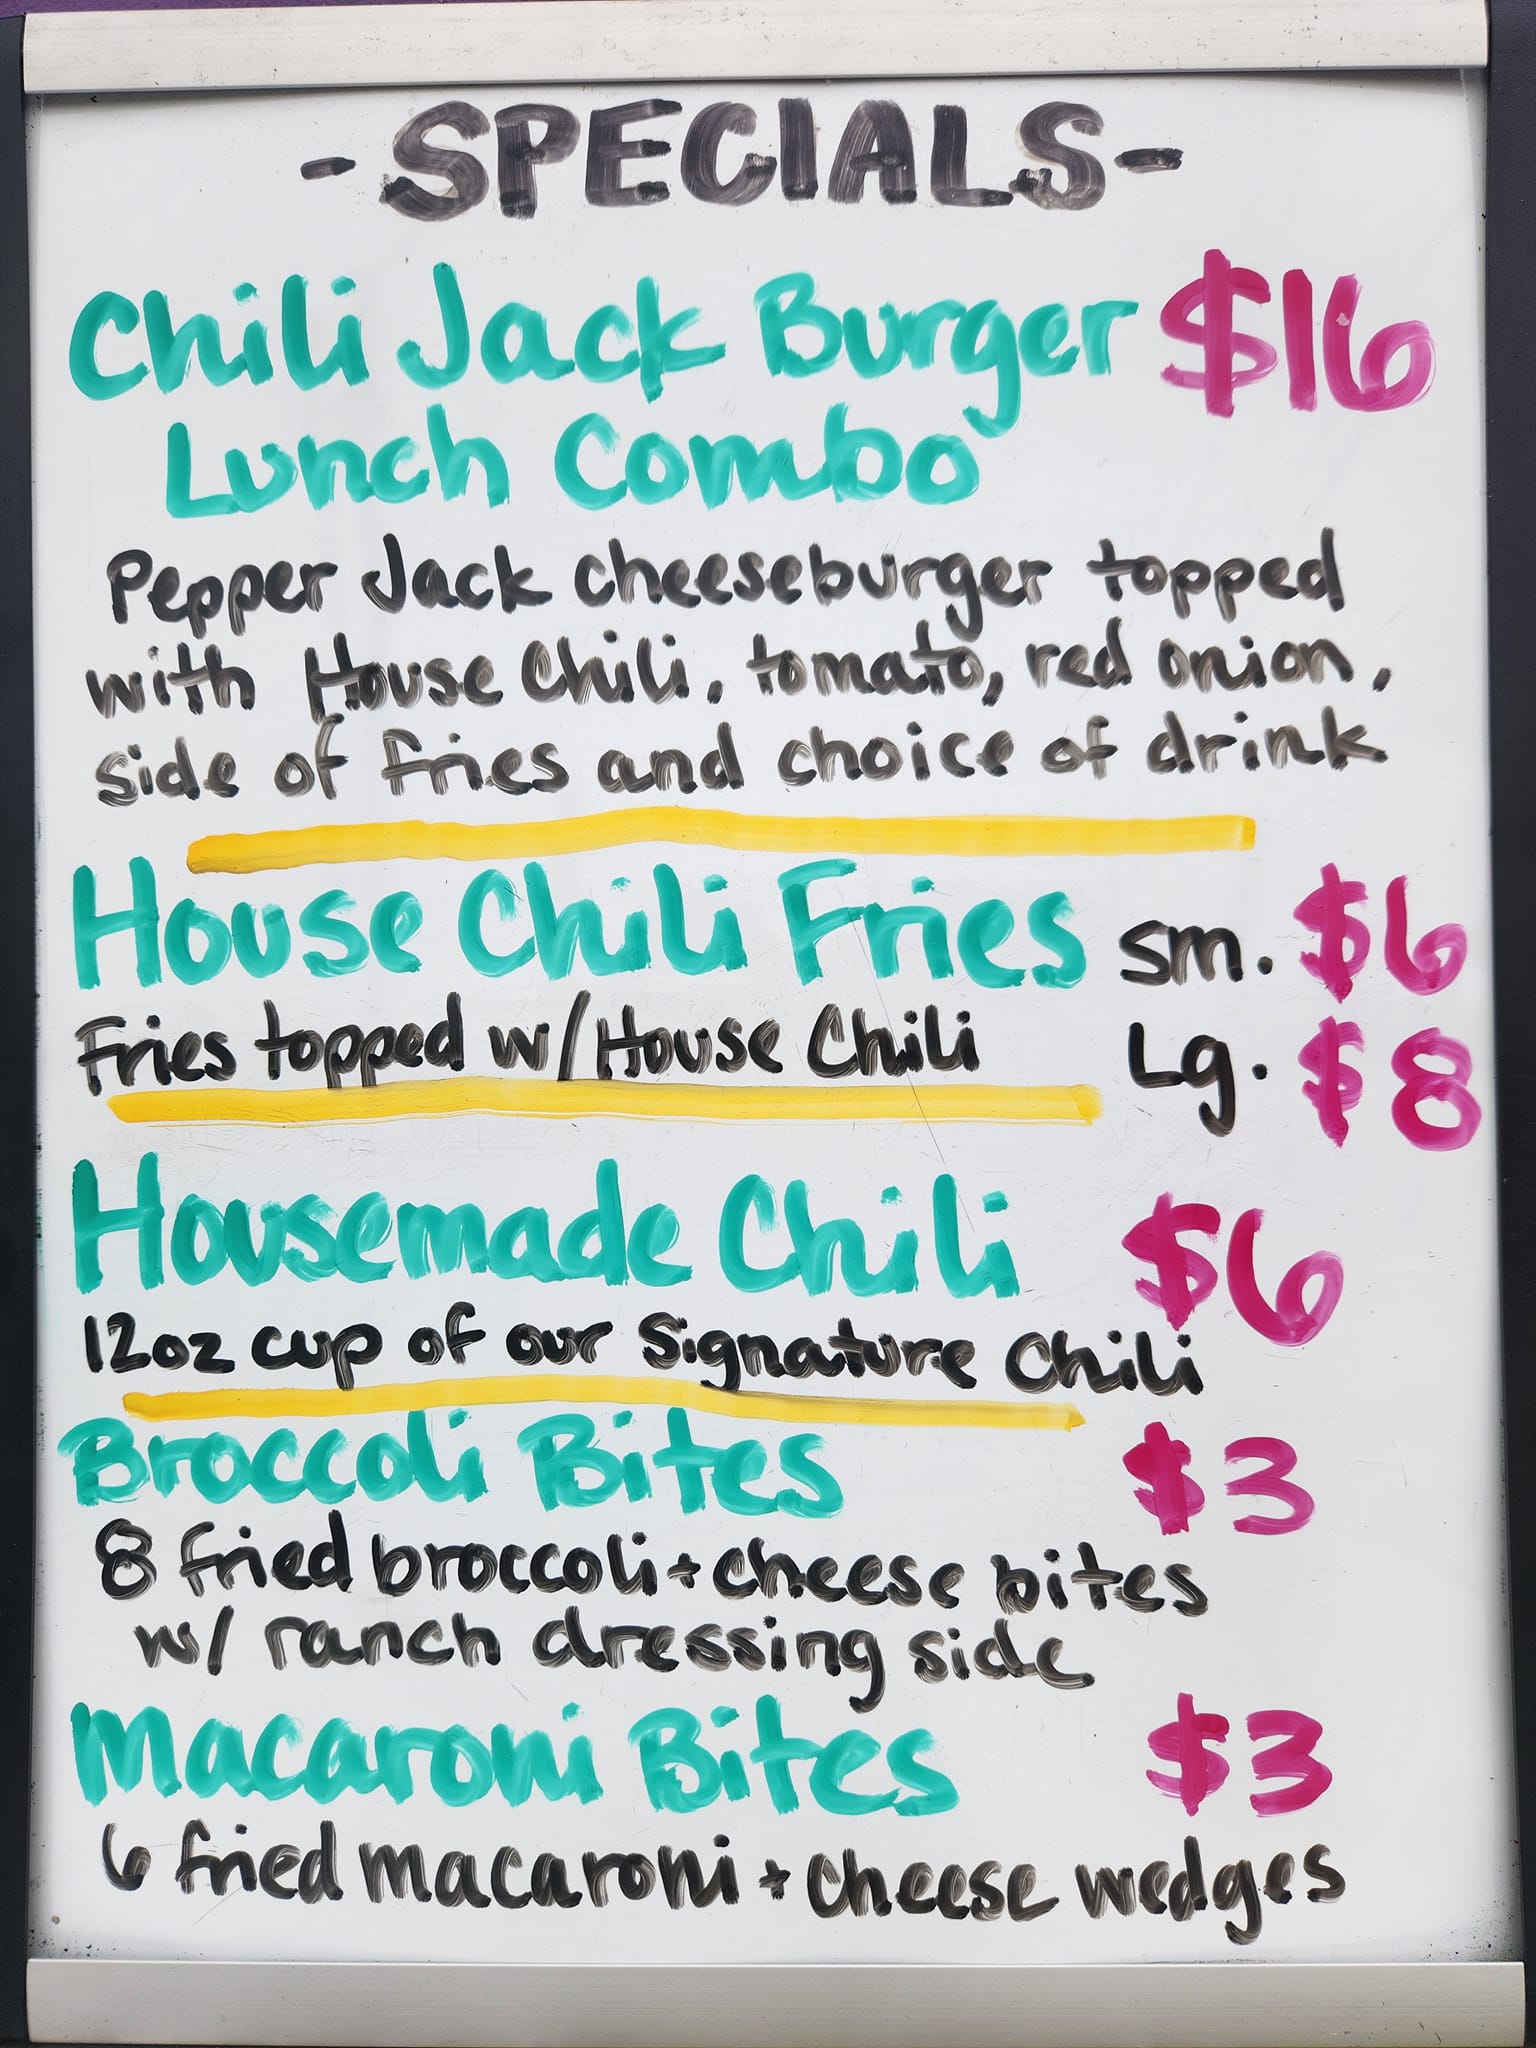 -SPECIALS-
Chili Jack Burger $16
Lunch Combo
Pepper Jack cheeseburger topped
with House Chili, tomato, red onion,
side of fries and choice of drink
House Chili Fries sm. $6
Fries topped w/House Chili Lg. $8
Housemade Chili $6
12oz cup of our Signature Chili
Broccoli Bites $3
8 fried broccoli + cheese bites
w/ ranch dressing side
Macaroni Bites $3
6 fried macaroni + cheese wedges